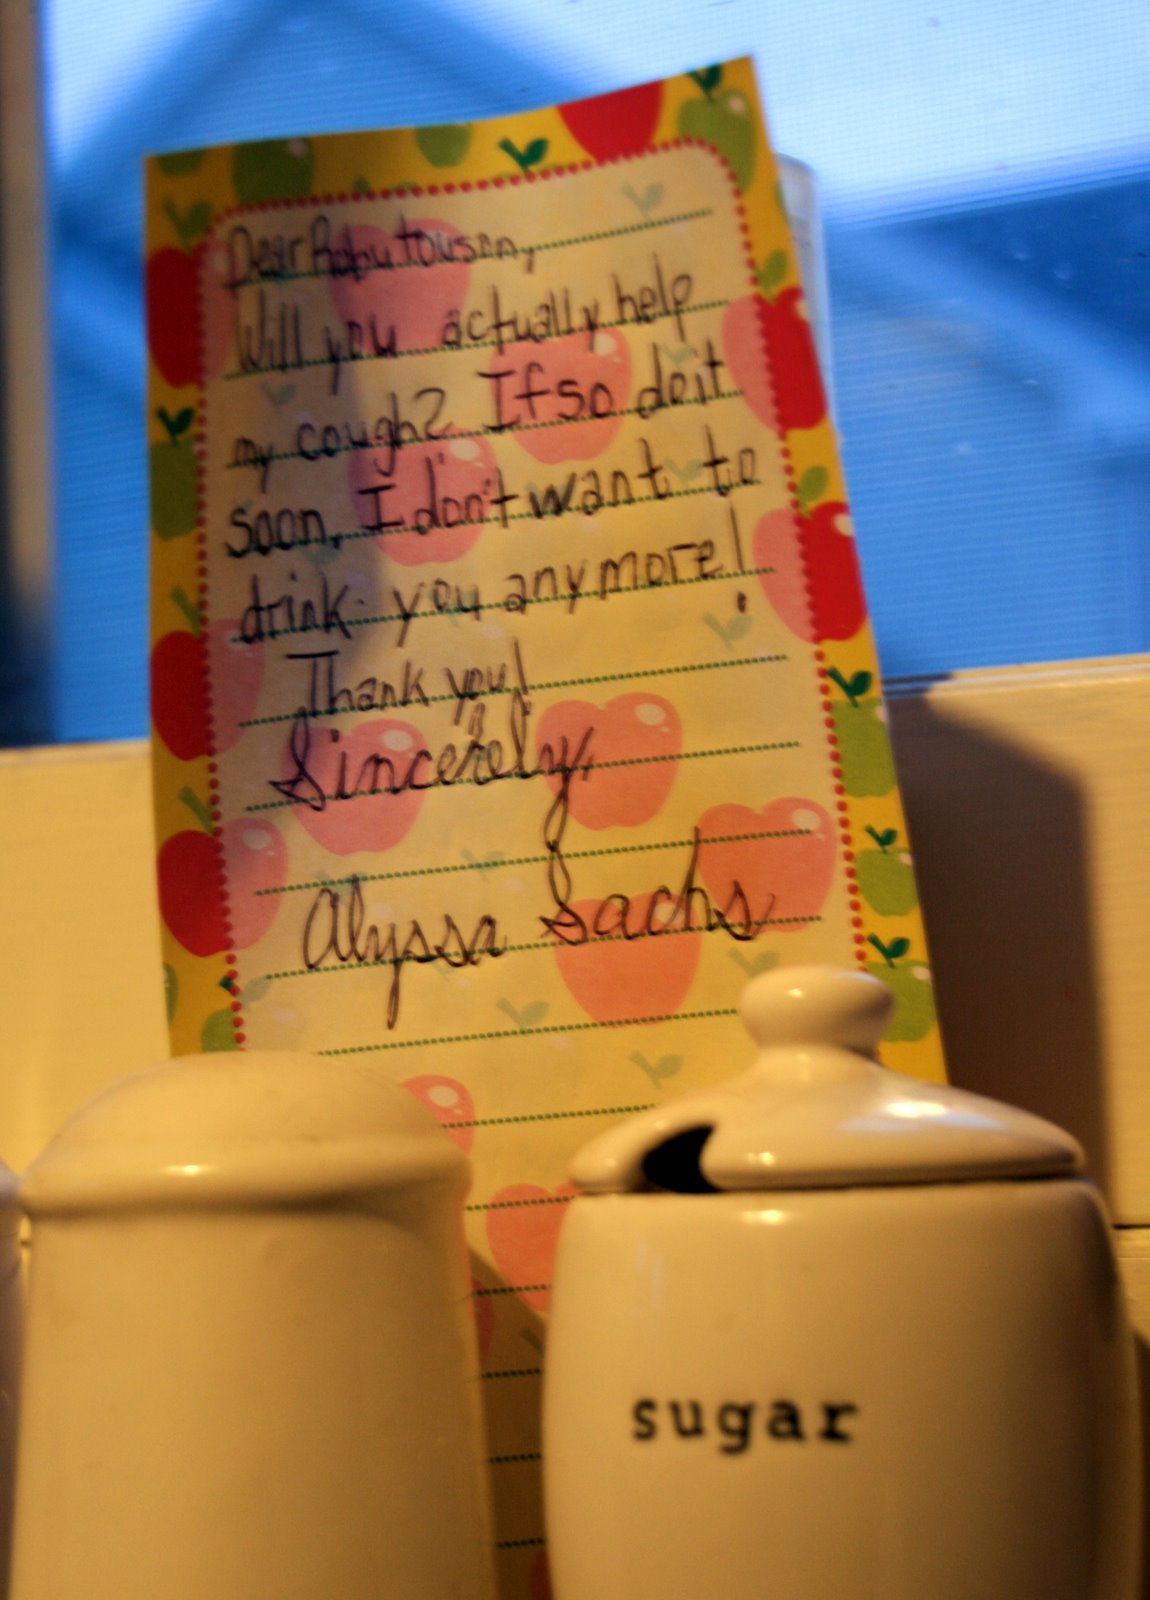 Dear Robutousen,
Will you actually help
my cough? If so do it
soon. I don't want to
drink you anymore!
Thank you!
Sincerely,
Alyssa Sachs
sugar